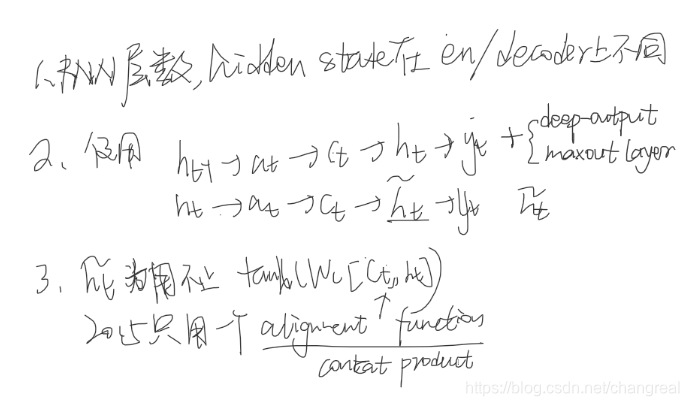 1、RNN层数, hidden state在 en/decoder上不同
2、使用 h_{t-1} → a_t → c_t → h_t → y_t + { deep-output
maxout layer
h_t → a_t → c_t → h̃_t → y_t h̃_t
3、h̃_t 用 tanh(Wc[Ct,ht])
2015只用一个 alignment function
concat product
https://blog.csdn.net/changreal